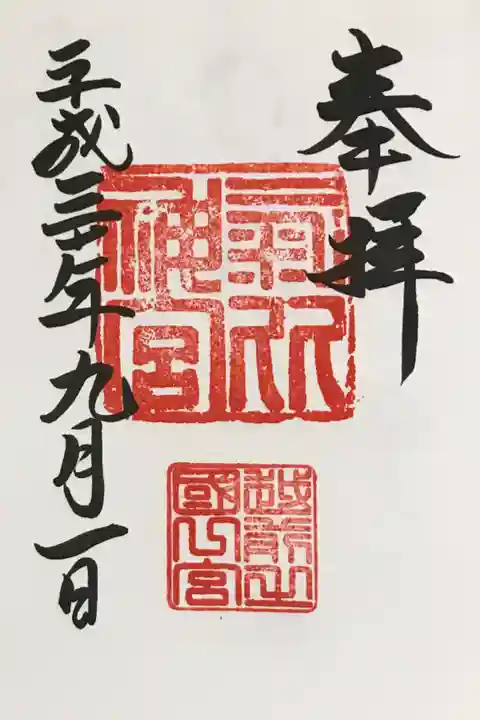 奉拝
氣比
神宮
越前之
國一宮
平成三十年九月一日